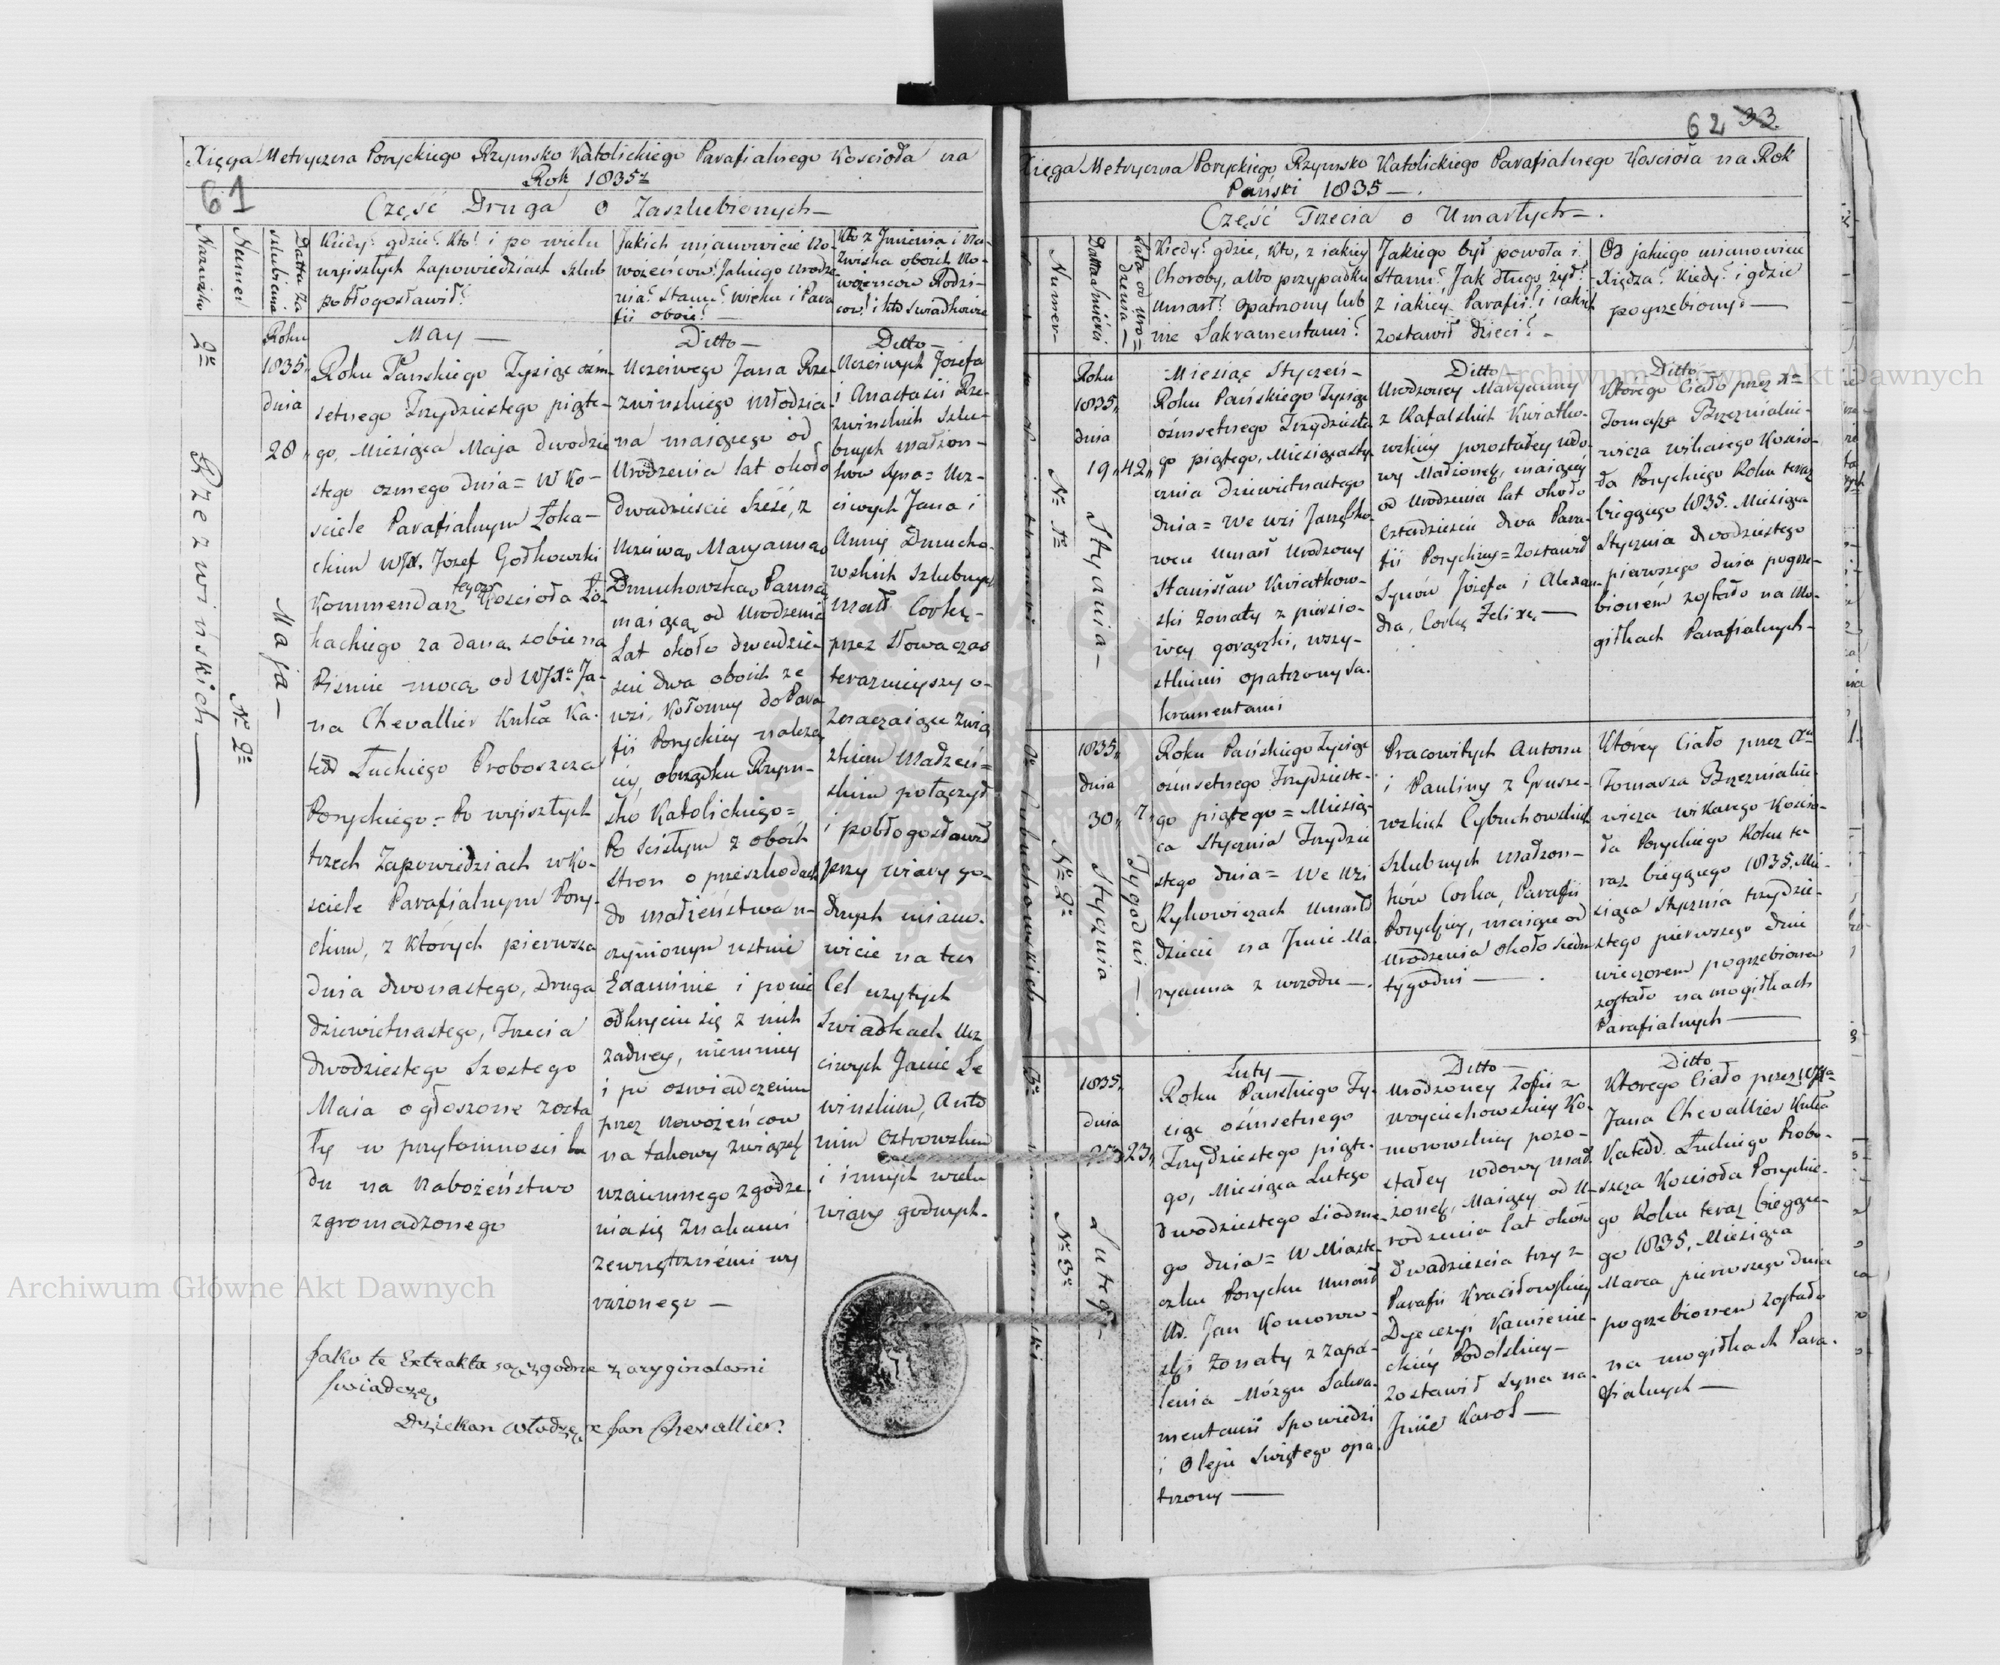 Xięga Metryczna Poryckiego Rzymsko Katolickiego Parafialnego Kościoła na
Rok 1835
61
Część Druga o Zaszlubionych
Nazwisko
Numer
Datta Zaszlubienia
Kiedy? gdzie? Kto? i po wielu
wyiszłych Zapowiedziach Szlub
pobłogosławił?
Jakich mianowicie No-
wożeńców? Jakiego Urodze
nia? Stanu? wieku i Para
fii oboie?
Kto z Jmienia i Na-
zwiska oboich No-
wożeńców Rodzi-
ców? i kto Swiadkowie
2o
Rzezwińskich
No 2o
Maja
Roku
1835
dnia
28
May
Roku Pańskiego Tysiąc ośm-
setnego Trzydziestego piąte-
go, Miesiąca Maja dwudzie
stego ozmego dnia = W Ko-
sciele Parafialnym Łoka-
ckim WJX. Jozef Gołkowski
Kommendarz tegoż Kościoła Ło-
kackiego za daną sobie na
Pismie mocą od WJXa Ja-
na Chevallier Knka Ka-
ted Łuckiego Proboszcza
Poryckiego = Po wyiszłych
trzech Zapowiedziach w Ko-
sciele Parafialnym Pory-
ckim, z których pierwsza
dnia dwonastego, Druga
dziewietnastego, Trzecia
dwodziestego Szostego
Maia ogłoszone zosta
ły w przytomnosci lu
du na Nabożeństwo
zgromadzonego
Ditto
Uczciwego Jana Rze-
zwinskiego młodzia-
na maiącego od
Urodzenia lat około
Dwadzieście Sześć, z
Uczciwą Maryanną
Dmuchowską Panną
maiącą od Urodzenia
Lat około dwadzie
scie dwa oboich ze
wsi, Kołowny do Para
fii Poryckiey należą
cy, obrządku Rzym-
sko Katolickiego =
Po scisłym z oboch
Stron o przeszkodach
do małżeństwa u-
czynionym ustnie
Examinie i po nie
odkryciu się z nich
żadney, niemniey
i po oswiadczeniu
przez Nowożeńcow
na takowy związek
wzaiemnego zgodze
nia się Znakami
zewnętrznemi wy
rażonego
Ditto
Uczciwych Jozefa
i Anastasii Rze-
zwinskich Szlu-
bnych małżon-
kow Syna = Ucz-
ciwych Jana i
Anny Dmucho-
wskich Szlubnych
małż Corkę-
przez Słowa czas
teraznieyszy o-
znaczaiące zwią
zkiem Małżeń=
skim połączył
i pobłogosławił
przy wiary go-
dnych miano-
wicie na ten
Cel użytych
Swiadkach Ucz
ciwych Janie Le
winskim, Anto
nim Ostrowskim
i innych wielu
wiary godnych.
Jako te Extrakta są zgodne z oryginałami
Swiadczę
Dziekan Włodz: x Jan Chevallier
62 33
Xięga Metryczna Poryckiego Rzymsko Katolickiego Parafialnego Kościoła na Rok
Pański 1835
Część Trzecia o Umarłych
Numer
Datta Śmierci
Lata od Uro=
dzenia
Kiedy? gdzie, Kto, z iakiey
Choroby, albo przypadku
Umarł? Opatrzony lub
nie Sakramentami?
Jakiego był powołania i
Stanu? Jak długo żył?
z iakiey Parafii? i iakich
zostawił dzieci?
Od jakiego mianowicie
Xiędza? Kiedy? i gdzie
pogrzebiony?
No 1o
Stycznia
Roku
1835
dnia
19
42
Miesiąc Styczeń
Roku Pańskiego Tysiąc
ośmsetnego Trzydzieste
go piątego, Miesiąca Sty
cznia Dziewietnastego
dnia = We wsi
Umarł Urodzony
Stanisław Kwiatkow-
ski Żonaty z piersio-
wey gorączki, wszy-
stkimi opatrzony Sa-
kramentami
Ditto
Urodzoney Maryanny
z Rafalskich Kwiatko-
wskiey pozostałey wdo-
wy Małżonek, maiący
od Urodzenia lat około
Cztadzieście dwa Para-
fii Poryckiey = Zostawił
Synów Józefa i Alexan-
dra, Corkę Felixę
Ditto
Ktorego Ciało przez Xa
Tomasza Brzeznialie-
wicza wikarego Koscio-
ła Poryckiego Roku teraz
bieggcego 1835. Miesiąca
Stycznia dwodziestego
pierwszego dnia pogrze-
bionem zostało na Mo-
giłkach Parafialnych
No 2o
Stycznia
1835
dnia
30
7
Tygodni
Roku Pańskiego Tysiąc
ośmsetnego Trzydzieste-
go piątego = Miesią-
ca Stycznia Trzydzie
stego dnia = We wsi
Rykowiczach Umarło
dziecie na Jmie Ma-
ryanna z wrzodu
Pracowitych Antona
i Pauliny z Grusze-
wskich Cybuchowskich
Szlubnych Małżon-
ków Corka, Parafii
Poryckiey, maiąca od
Urodzenia około siedm
tygodni
Ktorey Ciało przez Xa
Tomasza Brzeznialie-
wicza wikarego Koscio-
ła Poryckiego Roku te
raz bieggcego 1835. Mie-
siąca Stycznia trzydzie-
stego pierwszego dnia
wieczorem pogrzebionem
zostało na mogiłkach
Parafialnych
No 3o
Lutego
1835
dnia
23
Luty
Roku Pańskiego Ty-
siąc ośmsetnego
Trzydziestego piąte-
go, Miesiąca Lutego
dwodziestego siodme-
go dnia = W Miaste-
czku Porycku Umarł
Ur. Jan Komorow-
ski Żonaty z zapa-
lenia Mózgu Sakra-
mentami Spowiedzi
i Oleju Swiętego opa-
trzony
Ditto
Urodzoney Zofii z
Woyciechowskiey Ko-
morowskiey pozo-
stałey wdowy Małż-
żonek, Maiący od U-
rodzenia lat około
Dwadzieścia trzy z
Parafii Krasiłowskiey
Dyecezyi Kamienie-
ckiey Podolskiey
Zostawił Syna na
Jmie Karol
Ditto
Ktorego Ciało przez WJXa
Jana Chevallier Knka
Katedr. Łuckiego Probo-
szcza Kościoła Poryckie-
go Roku teraz bieggce-
go 1835, Miesiąca
Marca pierwszego dnia
pogrzebionem zostało
na mogiłkach Para-
fialnych
Archiwum Główne Akt Dawnych
Archiwum Główne Akt Dawnych